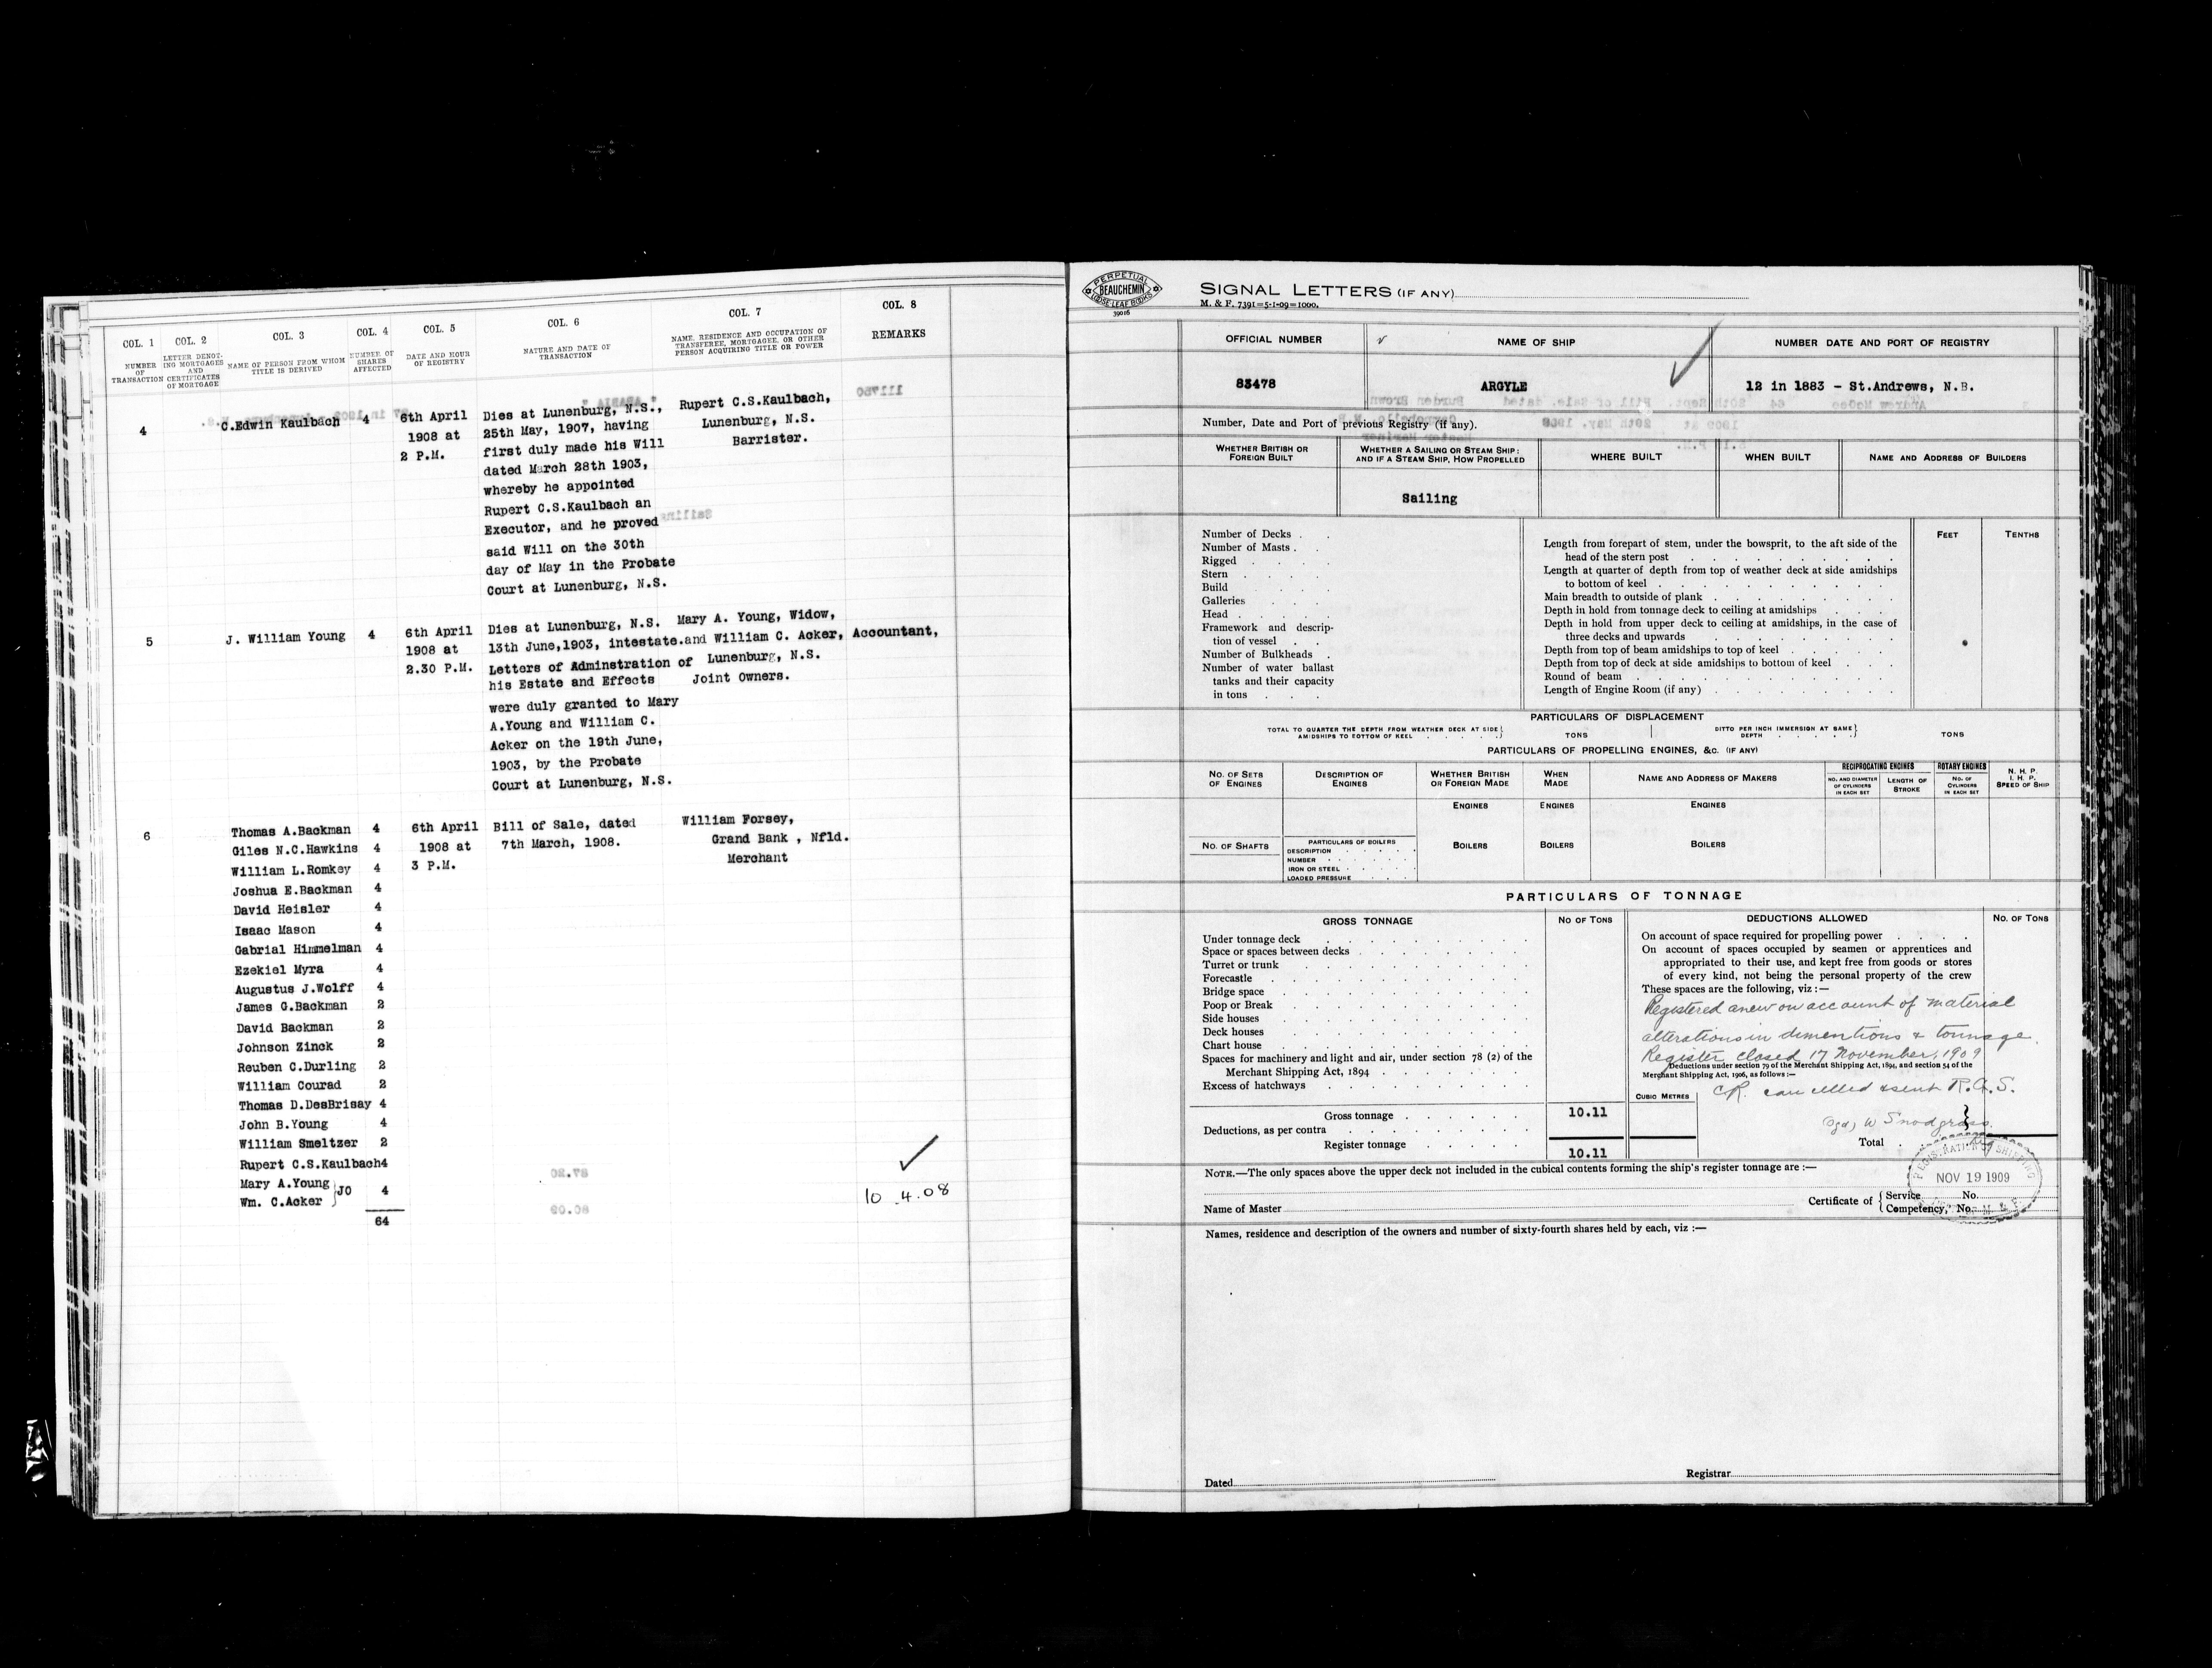 COL. 1
NUMBER
OF
TRANSACTION
COL. 2
LETTER DENOT-
ING MORTGAGES
AND
CERTIFICATES
OF MORTGAGE
COL. 3
NAME OF PERSON FROM WHOM
TITLE IS DERIVED
COL. 4
NUMBER OF
SHARES
AFFECTED
COL. 5
DATE AND HOUR
OF REGISTRY
COL. 6
NATURE AND DATE OF
TRANSACTION
COL. 7
NAME, RESIDENCE AND OCCUPATION OF
TRANSFEREE, MORTGAGEE, OR OTHER
PERSON ACQUIRING TITLE OR POWER
COL. 8
REMARKS
4
C.Edwin Kaulbach
4
6th April
1908 at
2 P.M.
Dies at Lunenburg, N.S.,
25th May, 1907, having
first duly made his Will
dated March 28th 1903,
whereby he appointed
Rupert C.S.Kaulbach an
Executor, and he proved
said Will on the 30th
day of May in the Probate
Court at Lunenburg, N.S.
Rupert C.S.Kaulbach,
Lunenburg, N.S.
Barrister.
5
J. William Young
4
6th April
1908 at
2.30 P.M.
Dies at Lunenburg, N.S.
13th June,1903, intestate.
Letters of Adminstration of
his Estate and Effects
were duly granted to Mary
A.Young and William C.
Acker on the 19th June,
1903, by the Probate
Court at Lunenburg, N.S.
Mary A. Young, Widow,
and William C. Acker, Accountant,
Lunenburg, N.S.
Joint Owners.
6
Thomas A.Backman 4
Giles N.C.Hawkins 4
William L.Romkey 4
Joshua E.Backman 4
David Heisler 4
Isaac Mason 4
Gabrial Himmelman 4
Ezekiel Myra 4
Augustus J.Wolff 4
James G.Backman 2
David Backman 2
Johnson Zinck 2
Reuben C.Durling 2
William Courad 2
Thomas D.DesBrisay 4
John B.Young 4
William Smeltzer 2
Rupert C.S.Kaulbach4
Mary A.Young
Wm. C.Acker
JO 4
64
6th April
1908 at
3 P.M.
Bill of Sale, dated
7th March, 1908.
William Forsey,
Grand Bank , Nfld.
Merchant
10 .4.08
PERPETUAL
BEAUCHEMIN
LOOSE LEAF BOOKS
39016
SIGNAL LETTERS (IF ANY)
M. & F. 7391=5-1-09=1000.
OFFICIAL NUMBER
NAME OF SHIP
NUMBER DATE AND PORT OF REGISTRY
83478
ARGYLE
12 in 1883 - St.Andrews, N.B.
Number, Date and Port of previous Registry (if any).
WHETHER BRITISH OR
FOREIGN BUILT
WHETHER A SAILING OR STEAM SHIP:
AND IF A STEAM SHIP, HOW PROPELLED
WHERE BUILT
WHEN BUILT
NAME AND ADDRESS OF BUILDERS
Sailing
Number of Decks
Number of Masts
Rigged
Stern
Build
Galleries
Head
Framework and descrip-
tion of vessel
Number of Bulkheads
Number of water ballast
tanks and their capacity
in tons
FEET
TENTHS
Length from forepart of stem, under the bowsprit, to the aft side of the
head of the stern post
Length at quarter of depth from top of weather deck at side amidships
to bottom of keel
Main breadth to outside of plank
Depth in hold from tonnage deck to ceiling at amidships
Depth in hold from upper deck to ceiling at amidships, in the case of
three decks and upwards
Depth from top of beam amidships to top of keel
Depth from top of deck at side amidships to bottom of keel
Round of beam
Length of Engine Room (if any)
PARTICULARS OF DISPLACEMENT
TOTAL TO QUARTER THE DEPTH FROM WEATHER DECK AT SIDE
AMIDSHIPS TO BOTTOM OF KEEL
TONS
DITTO PER INCH IMMERSION AT SAME
DEPTH
TONS
PARTICULARS OF PROPELLING ENGINES, &c. (IF ANY)
NO. OF SETS
OF ENGINES
DESCRIPTION OF
ENGINES
WHETHER BRITISH
OR FOREIGN MADE
WHEN
MADE
NAME AND ADDRESS OF MAKERS
RECIPROCATING ENGINES
NO. AND DIAMETER
OF CYLINDERS
IN EACH SET
LENGTH OF
STROKE
ROTARY ENGINES
NO. OF
CYLINDERS
IN EACH SET
N. H. P.
I. H. P.
SPEED OF SHIP
ENGINES
ENGINES
ENGINES
NO. OF SHAFTS
PARTICULARS OF BOILERS
DESCRIPTION
NUMBER
IRON OR STEEL
LOADED PRESSURE
BOILERS
BOILERS
BOILERS
PARTICULARS OF TONNAGE
GROSS TONNAGE
NO OF TONS
DEDUCTIONS ALLOWED
NO. OF TONS
Under tonnage deck
Space or spaces between decks
Turret or trunk
Forecastle
Bridge space
Poop or Break
Side houses
Deck houses
Chart house
Spaces for machinery and light and air, under section 78 (2) of the
Merchant Shipping Act, 1894
Excess of hatchways
Gross tonnage
10.11
Deductions, as per contra
Register tonnage
10.11
On account of space required for propelling power
On account of spaces occupied by seamen or apprentices and
appropriated to their use, and kept free from goods or stores
of every kind, not being the personal property of the crew
These spaces are the following, viz :—
Registered anew on account of material
alterations in dimentions & tonnage.
Register closed 17 November, 1909
Deductions under section 79 of the Merchant Shipping Act, 1894, and section 54 of the
Merchant Shipping Act, 1906, as follows:—
CUBIC METRES
CR. cancelled & sent R.G.S.
(Sgd) W Snodgrass
Total
REGISTRATION OF SHIPPING
NOV 19 1909
NOTE.—The only spaces above the upper deck not included in the cubical contents forming the ship's register tonnage are :—
Name of Master
Certificate of
Service No.
Competency, No.
Names, residence and description of the owners and number of sixty-fourth shares held by each, viz :—
Dated
Registrar